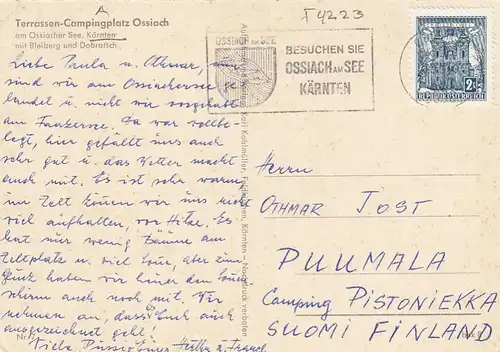 A
Terrassen-Campingplatz Ossiach
am Ossiacher See, Kärnten
mit Bleiberg und Dobratsch
T 4223
OSSIACH AM SEE
BESUCHEN SIE
OSSIACH AM SEE
KÄRNTEN
REPUBLIK ÖSTERREICH
Liebe Paula u. Othmar, nun
sind wir am Ossiachersee ge
landet u. nicht wie vorgehabt
am Faakersee. Da war vollbe-
legt, hier gefällt uns auch
sehr gut u. das Wetter macht
auch mit. Es ist sehr warm,
im Zelt können wir uns nicht
viel aufhalten, vor Hitze. Es
hat nur wenig Bäume am
Zeltplatz u. viel Sonne, aber zum
Glück haben wir den
schirm auch noch mit. Wir
nehmen an, dass Euch auch
ausgezeichnet geht!
Liebe u. Franzl
Nr.
Karl Kohlmüller, Kärnten - Nachdruck verboten
Herrn
OTHMAR JOST
PUUMALA
Camping PISTONIEKKA
SUOMI FINLAND